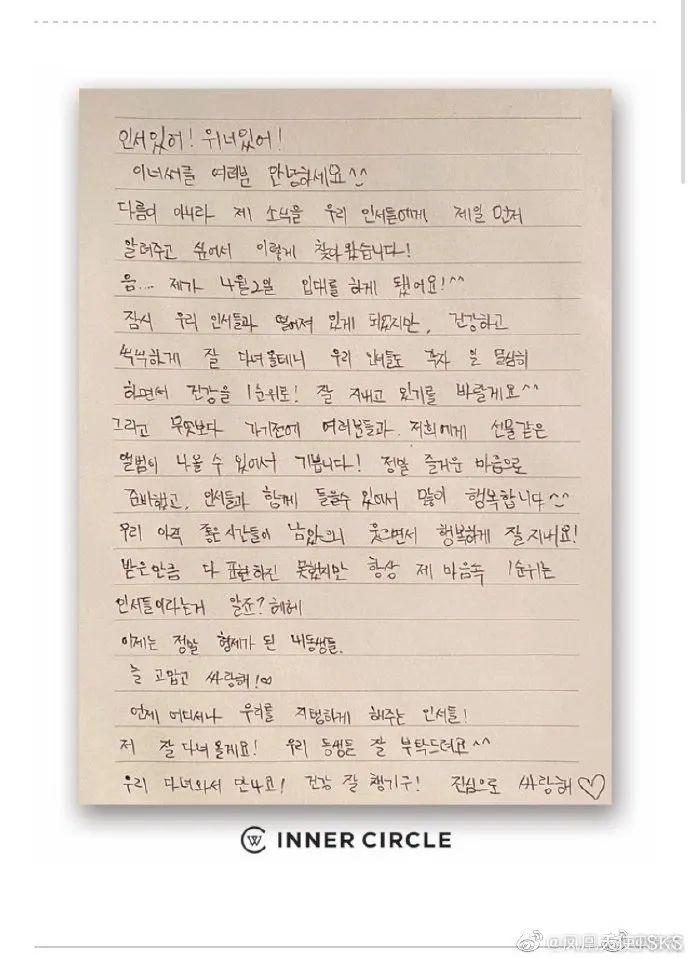 인서있어! 위너있어!
이너써클 여러분 안녕하세요^^
다름이 아니라 제 소식을 우리 인서들에게 제일 먼저
알려주고 싶어서 이렇게 찾아왔습니다!
음... 제가 4월2일 입대를 하게 됐어요!^^
잠시 우리 인서들과 떨어져 있게 되었지만, 건강하고
씩씩하게 잘 다녀올테니 우리 인서들도 각자 일 열심히
하면서 건강을 1순위로! 잘 지내고 있기를 바랄게요^^
그리고 무엇보다 가기전에 여러분들과 저희에게 선물같은
앨범이 나올 수 있어서 기쁩니다! 정말 즐거운 마음으로
준비했고, 인서들과 함께 들을수 있어서 많이 행복합니다^^
우리 아직 좋은시간들이 남았으니 웃으면서 행복하게 잘지내요!
받은만큼 다 표현하진 못했지만 항상 제 마음속 1순위는
인서들이라는거 알죠? 헤헤
이제는 정말 형제가 된 내동생들.
늘 고맙고 싸랑해!♡
언제 어디서나 우리를 지탱하게 해주는 인서들!
저 잘다녀올게요! 우리 동생들 잘 부탁드려요^^
우리 다녀와서 만나요! 건강 잘 챙기구! 진심으로 싸랑해♡
INNER CIRCLE